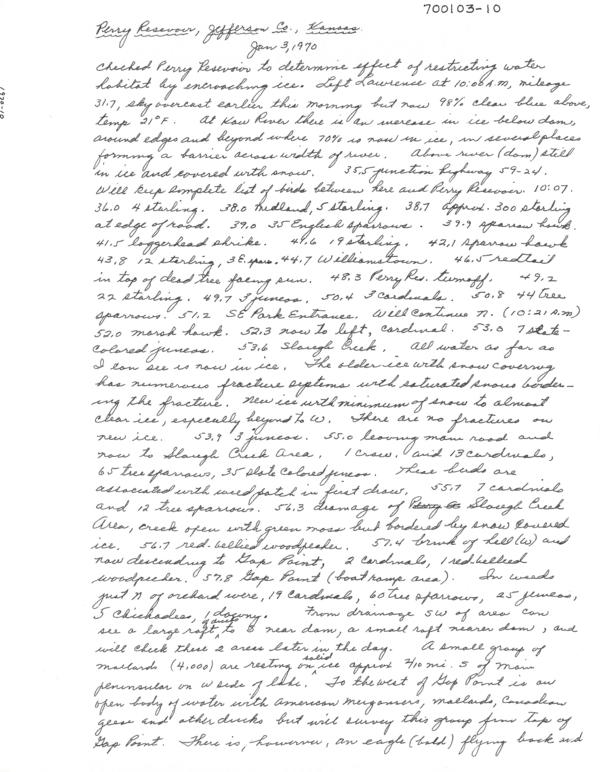 700103-10
Perry Resevoir, Jefferson Co., Kansas
Jan 3, 1970
Checked Perry Resevoir to determine effect of restricting water
habitat by encroaching ice. Left Lawrence at 10:00 A.M, mileage
31.7, sky overcast earlier this morning but now 98% clear blue above,
temp 21°F. At Kaw River there is an increase in ice below dam,
around edges and beyond where 70% is now in ice, in several places
forming a barrier across width of river. Above river (dam) still
in ice and covered with snow. 35.5 junction highway 59-24.
Will keep complete list of birds between here and Perry Resevoir 10:07.
36.0 4 starling. 38.0 Midland, 5 starling. 38.7 approx. 300 starling
at edge of road. 39.0 35 English sparrows. 39.9 sparrow hawk.
41.5 loggerhead shrike. 41.6 19 starling. 42.1 sparrow hawk
43.8 12 starling, 3 E. spar. 44.7 Williamstown. 46.5 redtail
in top of dead tree facing sun. 48.3 Perry Res. turnoff. 49.2
22 starling. 49.7 3 juncos, 50.4 3 cardinals. 50.8 44 tree
sparrows. 51.2 SE Park Entrance. Will continue N. (10:21 A.M)
52.0 marsh hawk. 52.3 now to left, cardinal. 53.0 7 slate-
colored juncos. 53.6 Slough Creek. All water as far as
I can see is now in ice. The older ice with snow covering
has numerous fracture systems with saturated snow border-
ing the fracture. New ice with minimum of snow to almost
clear ice, especially beyond to W. There are no fractures on
new ice. 53.9 3 juncos. 55.0 leaving main road and
now to Slough Creek Area, 1 crow, and 13 cardinals,
65 tree sparrows, 35 slate colored juncos. These birds are
associated with weed patch in first draw. 55.7 7 cardinals
and 12 tree sparrows. 56.3 drainage of Slough Creek
Area, creek open with green moss but bordered by snow covered
ice. 56.7 red-bellied woodpecker. 57.4 brink of hill (W) and
now descending to Gap Point, 2 cardinals, 1 red-bellied
woodpecker. 57.8 Gap Point (boat ramp area). In weeds
just N of orchard were, 19 cardinals, 60 tree sparrows, 25 juncos,
5 chickadees, 1 downy. From drainage SW of area can
see a large raft of ducts to S near dam, a small raft nearer dam, and
will check these 2 areas later in the day. A small group of
mallards (4,000) are resting on solid ice approx 2/10 mi. S of main
peninsular on W side of lake. To the west of Gap Point is an
open body of water with American mergansers, mallards, Canadian
geese and other ducks but will survey this group from top of
Gap Point. There is, however, an eagle (bald) flying back and